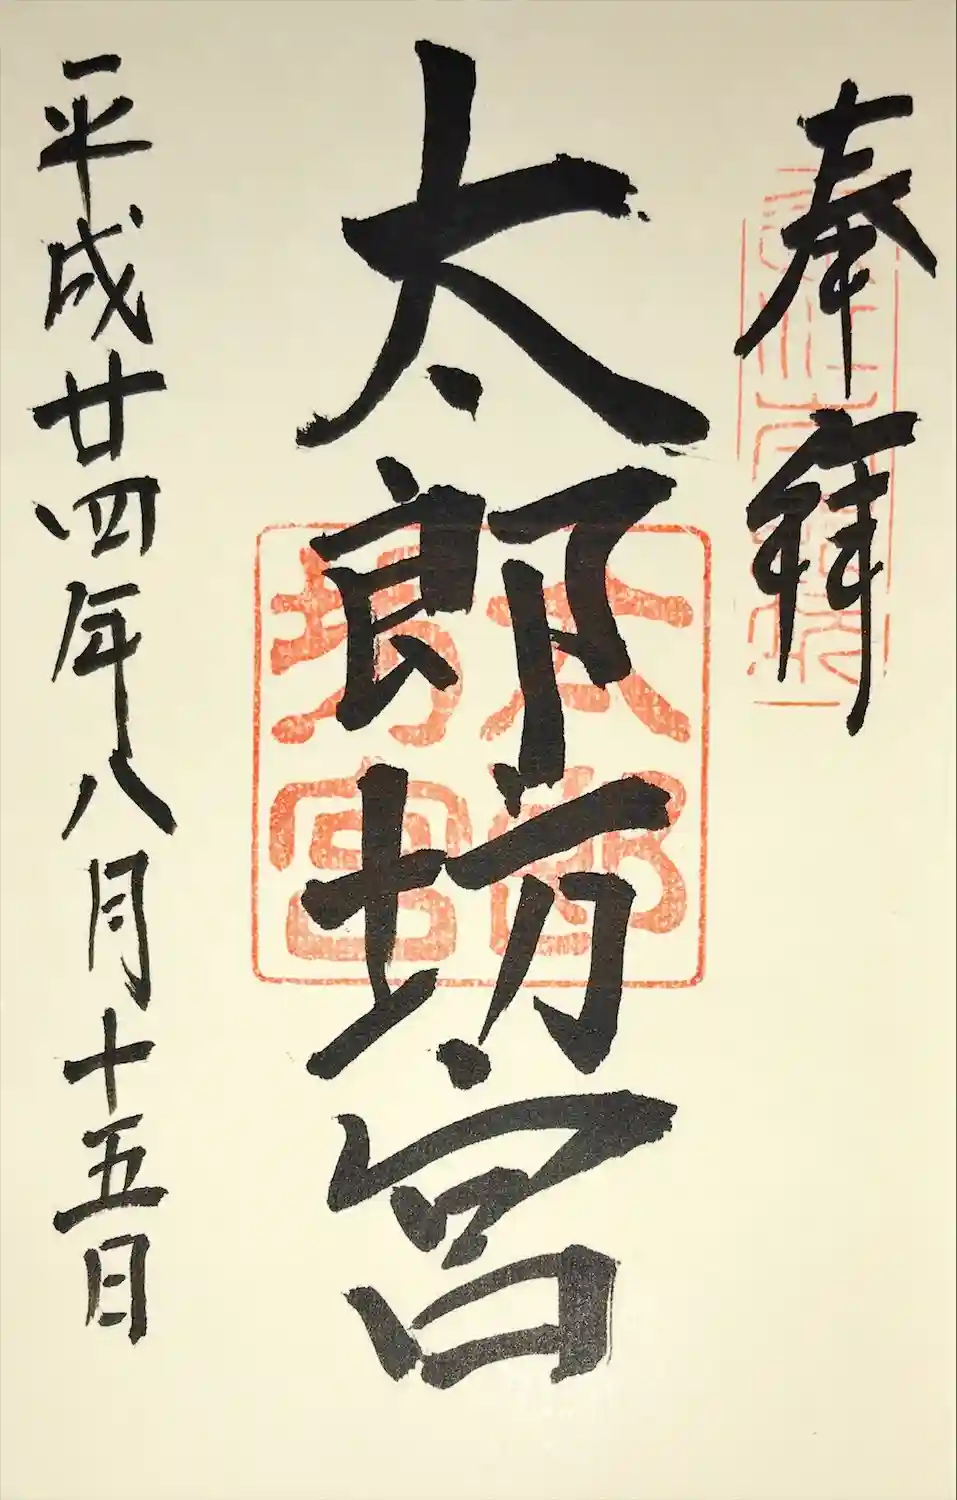 奉拝
太郎坊宮
平成廿四年八月十五日
太郎
坊宮